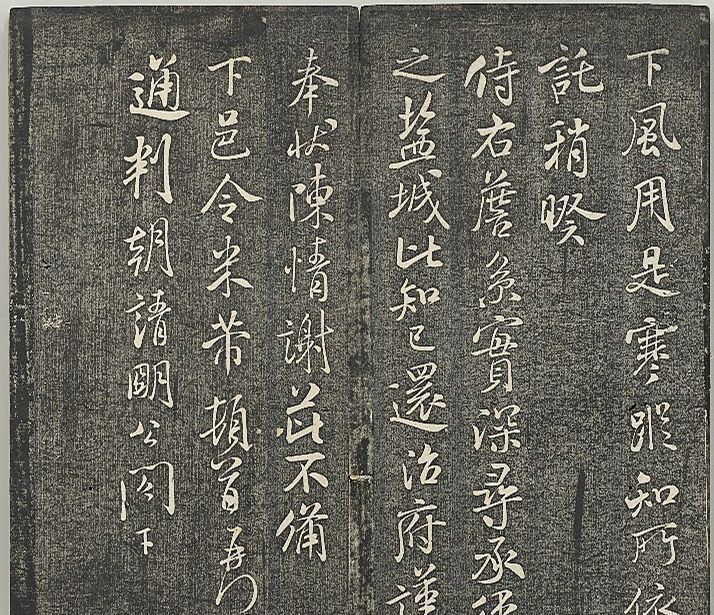 下風用是寒蹤知所依
託稍暌
侍右舊系實深尋承
之盐城比知已還治府謹
奉狀陳情謝茲不備
下邑令米芾頓首再
通判朝請明公閤下